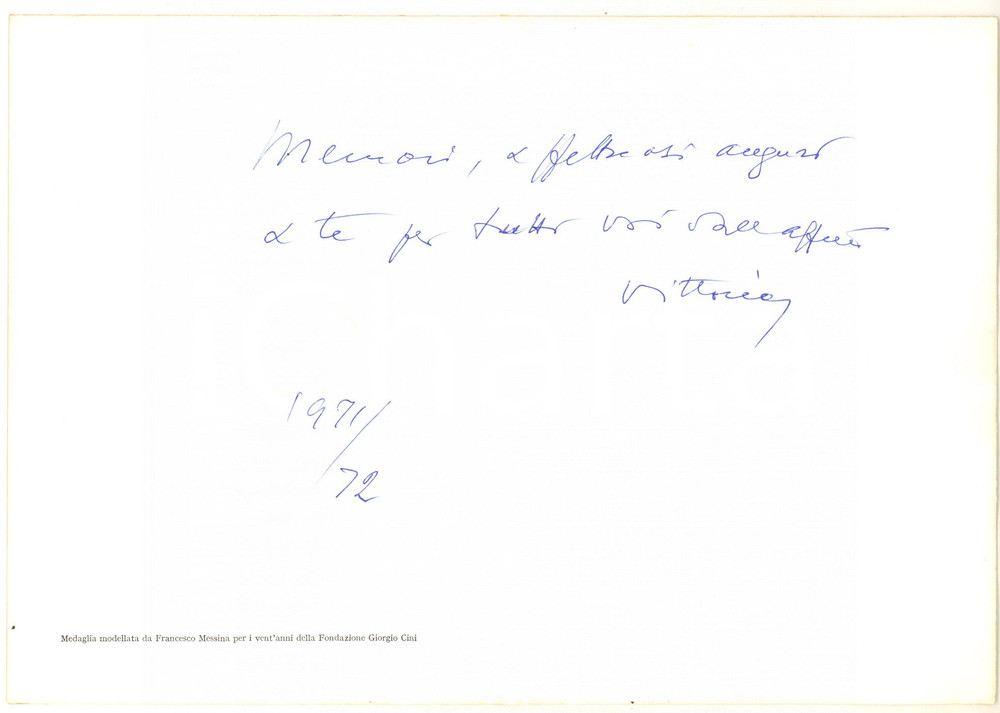 Memori, affettuosi auguri
a te per tutti voi dall'aff.mo
Vittorio
1971/
72
Medaglia modellata da Francesco Messina per i vent'anni della Fondazione Giorgio Cini